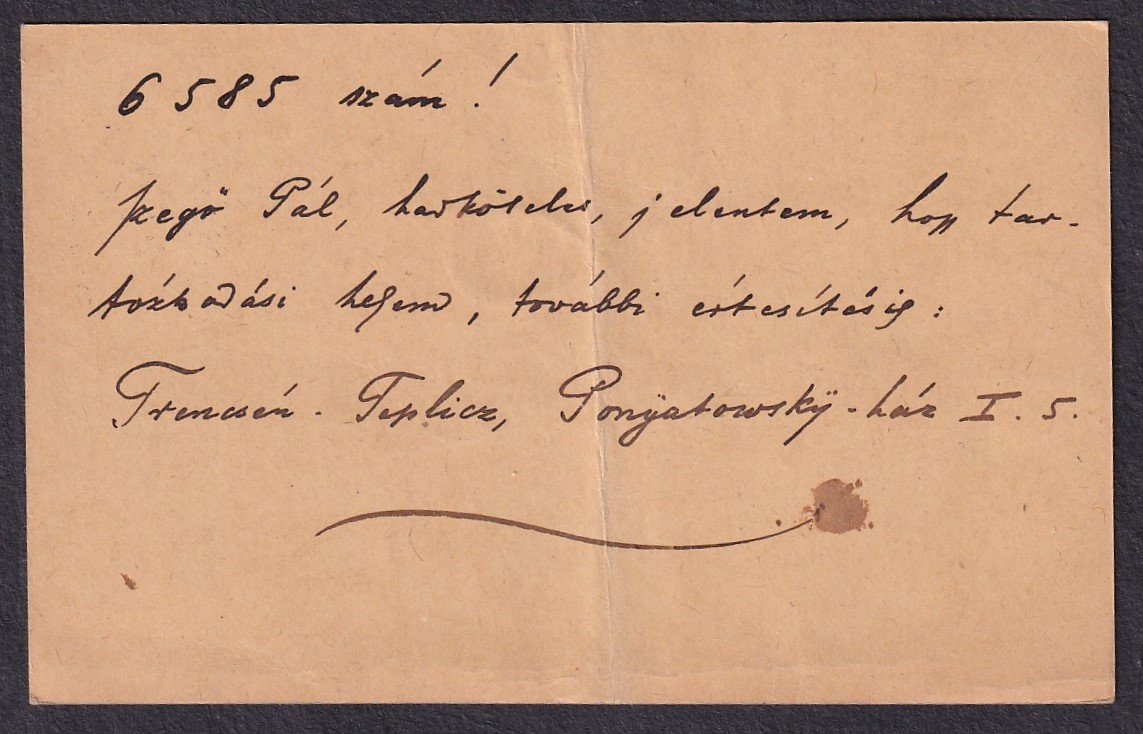 6585 szám!
Szegő Pál, hadköteles, jelentem, hogy tar-
tózkodási helyem, további értesítésig:
Trencsén-Teplicz, Ponÿatowskÿ-ház I. 5.